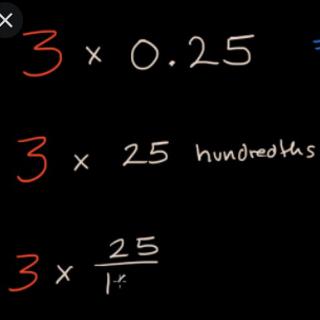 3 × 0.25 =
3 × 25 hundredths
3 × 25
1